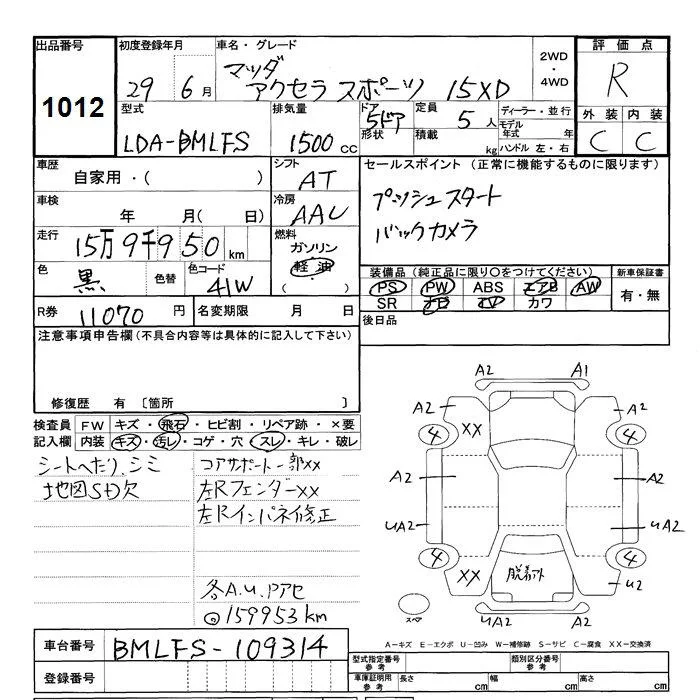 出品番号 初度登録年月 車名・グレード 2WD・4WD 評価点
1012 29 6月 マツダ アクセラスポーツ 15XD R
型式 排気量 ドア 5ドア 形状 定員 5人 積載 kg ディーラー・並行 モデル年式 年 ハンドル 左・右 外装 内装
LDA-BMLFS 1500cc C C
車歴 自家用・( ) シフト AT セールスポイント (正常に機能するものに限ります)
車検 年 月( 日) 冷房 AAC プッシュスタート
走行 15万9千950km 燃料 ガソリン 軽油 ( ) バックカメラ
色 黒 色替 色コード 41W 装備品(純正品に限り○をつけてください) 新車保証書
PS PW ABS エアB AW 有・無
SR ナビ TV カワ
R券 11070円 名変期限 月 日 後日品
注意事項申告欄(不具合内容等は具体的に記入して下さい)
修復歴 有 〔箇所
検査員 FW キズ・飛石・ヒビ割・リペア跡・×要
記入欄 内装 キズ・汚レ・コゲ・穴・スレ・キレ・破レ
シートへたり、シミ コアサポート一部XX
地図SD欠 左Rフェンダーxx
左Rインパネ修正
各A.U.Pアセ
◎159953km
A2 A1
A2 XX A2
4 4
A2 A2
UA2 UA2
4 4
XX 脱着アト U2
スペア UA2 A2
A-キズ E-エクボ U-凹み W-補修跡 S-サビ C-腐食 XX-交換済
車台番号 BMLFS-109314
登録番号
型式指定番号 参考 類別区分番号 参考
車庫証明用 参考 長さ cm 幅 cm 高さ cm